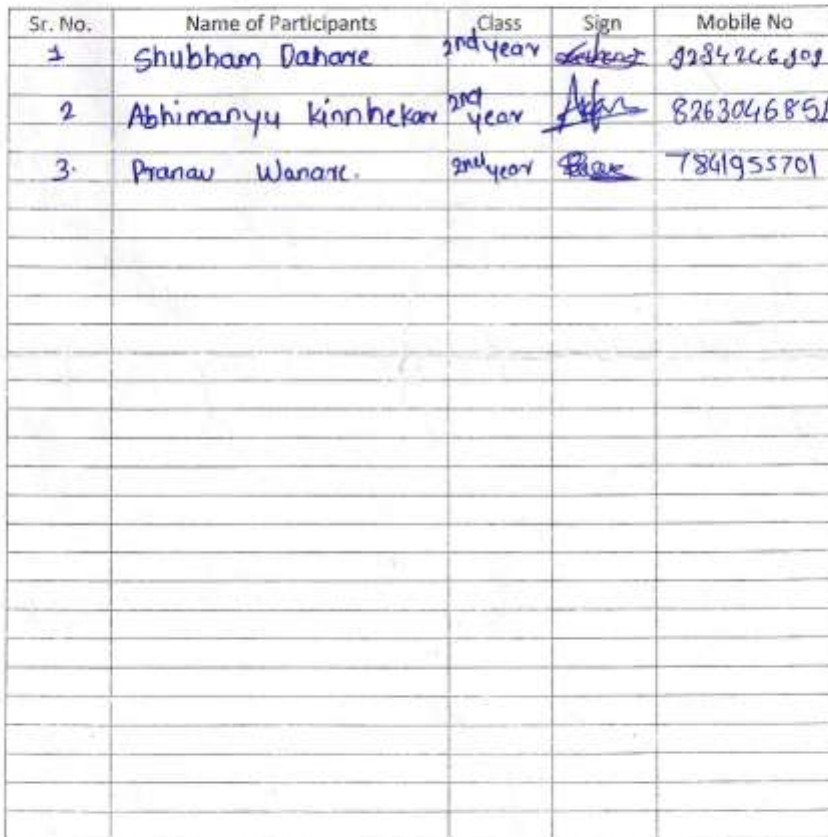 Sr. No. Name of Participants Class Sign Mobile No
1 Shubham Dahare 2nd year
2 Abhimanyu Kinnhekar 2nd year 8263046851
3. Pranav Wanare. 2nd year 7841955701